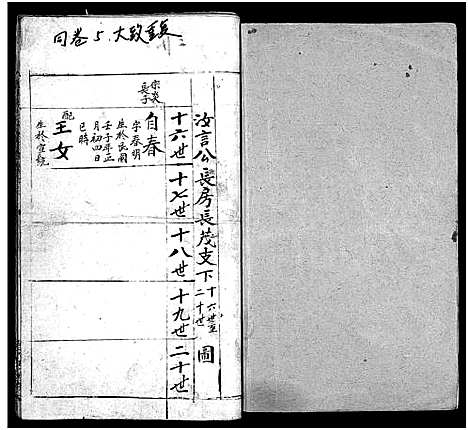 汝言公長房長茂支下十六世至二十世圖
十六世
十七世
十八世
十九世
二十世
長子
自春
字春明
生於民國
壬子年正
月初四日
巳時
配
王女
生於宣統